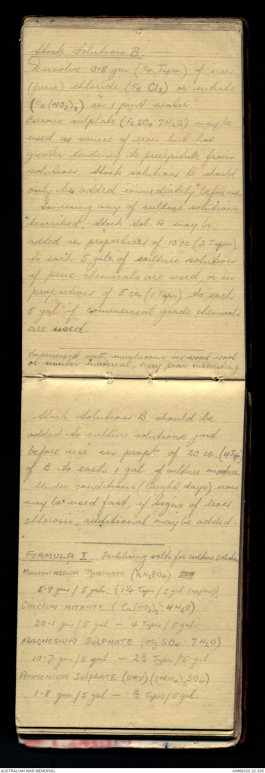 Stock Solution B.
Dissolve 0.8 gms (¼ Tspn) of iron
(ferric) chloride (Fe Cl3) or nitrate
(Fe(NO3)3) in 1 pint water.
Ferrous sulphate (FeSO4.7H2O) may be
used as source of iron but has
greater tendency to precipitate from
solutions. Stock solutions B should
only be added immediately before use.
In using any of culture solutions
described, Stock Sol. A may be
added in proportions of 10 cc (2 Tspn)
to each 5 gals. of culture solutions
if pure chemicals are used or in
proportions of 5 cc (1 Tspn) to each
5 gal if commercial grade chemicals
are used.
Experiment with mushrooms in wood wool
or similar material, may prove rewarding
Stock Solutions B should be
added to culture solutions just
before use in propt. of 20 cc (4 Tsp)
of B to each 1 gal. of culture mixture
Under conditions (bright days) iron
may be used fast, if signs of iron
chlorosis, additional may be added.
FORMULA I. Fertilizing salts for culture solution
MONOPOTASSIUM PHOSPHATE (KH2PO4)
5.9 gm / 5 gals.
CALCIUM NITRATE (Ca(NO3)2.4H2O)
20.1 gm / 5 gal — 4 Tspn / 5 gal.
MAGNESIUM SULPHATE (MgSO4.7H2O)
10.7 gm / 5 gal — 2½ Tspn / 5 gal
AMMONIUM SULPHATE (DRY) ((NH4)2SO4)
1.8 gm / 5 gal — ½ Tspn / 5 gal
AUSTRALIAN WAR MEMORIAL